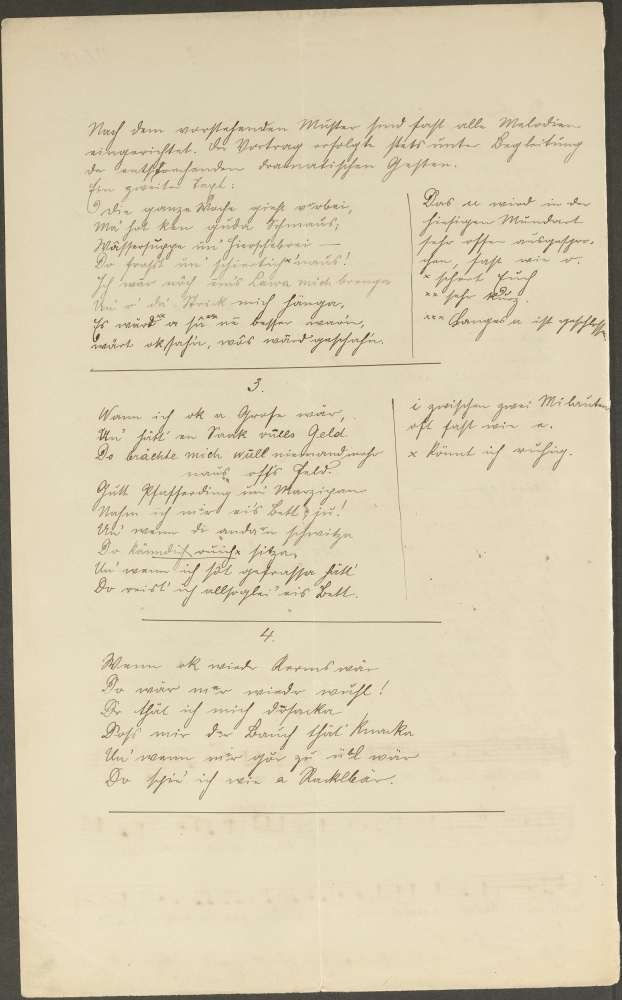 Nach dem vorstehenden Muster sind fast alle Melodien
eingerichtet. Der Vortrag erfolgte stets unter Begleitung
der entsprechenden dramatischen Gesten.
Ein zweiter Text:
Die ganze Woche gieht vorbei,
Ma hot ken guda Schmaus;
Wassersuppe un' Hierschebrei —
Do
Ich wär noch ums Lawa mich brenga
Un' o' da Strick mich hänga,
Es würd a besser waarn,
wärt ok sahn, wos wärd geschahn.
Das a wird in der
hiesigen Mundart
sehr offen ausgespro-
chen, fast wie o.
x schert Euch
xx sehr kurz.
xxx langes a ist geschlossen
3.
Wann ich ok a Grofe wär,
Un' hätt' en Saak vulls Geld
Do brächte mich wull niemand mehr
naus uffs Feld.
Gutt Pfafferding un' Marzipan
Nahm ich mir eis Bett
Un' wenn de andarn schwitza
Do kännd ich ruich x sitza,
Un' wenn ich söt gefrassa hätt'
Do reist' ich allsoglei' eis Bett.
i zwischen zwei Mitlauten
oft fast wie e.
x könnt ich ruhig.
4.
Wenn ok wieder Kerms wär
Do wär mer wieder wuhl!
Do thät ich mich
Doss mir der Bauch thät knacka
Un' wenn mir gor zu übl wär
Do schrie ich wie a Racklbär.